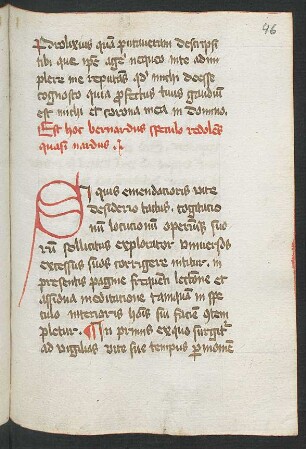 46
Prolixius quam putaveram descripsi
tibi que ipse agere nequeo in te adim
plere me reputans quod michi deesse
cognosco quia profectus tuus gaudium
est michi et corona mea in domino.
Est hoc bernardus speculo redolens
quasi nardus.
Si quis emendatioris vite
desiderio tactus. cogitatio
num locutionum operumque suo
rum sollicitus explorator universos
excessus suos corrigere nititur. in
presentis pagine frequenti lectione et
assidua meditatione tamquam in spe
culo interioris hominis sui faciem contem
pletur. ¶ In primis ex quo surgitur
ad vigilias vite sue tempus per momen